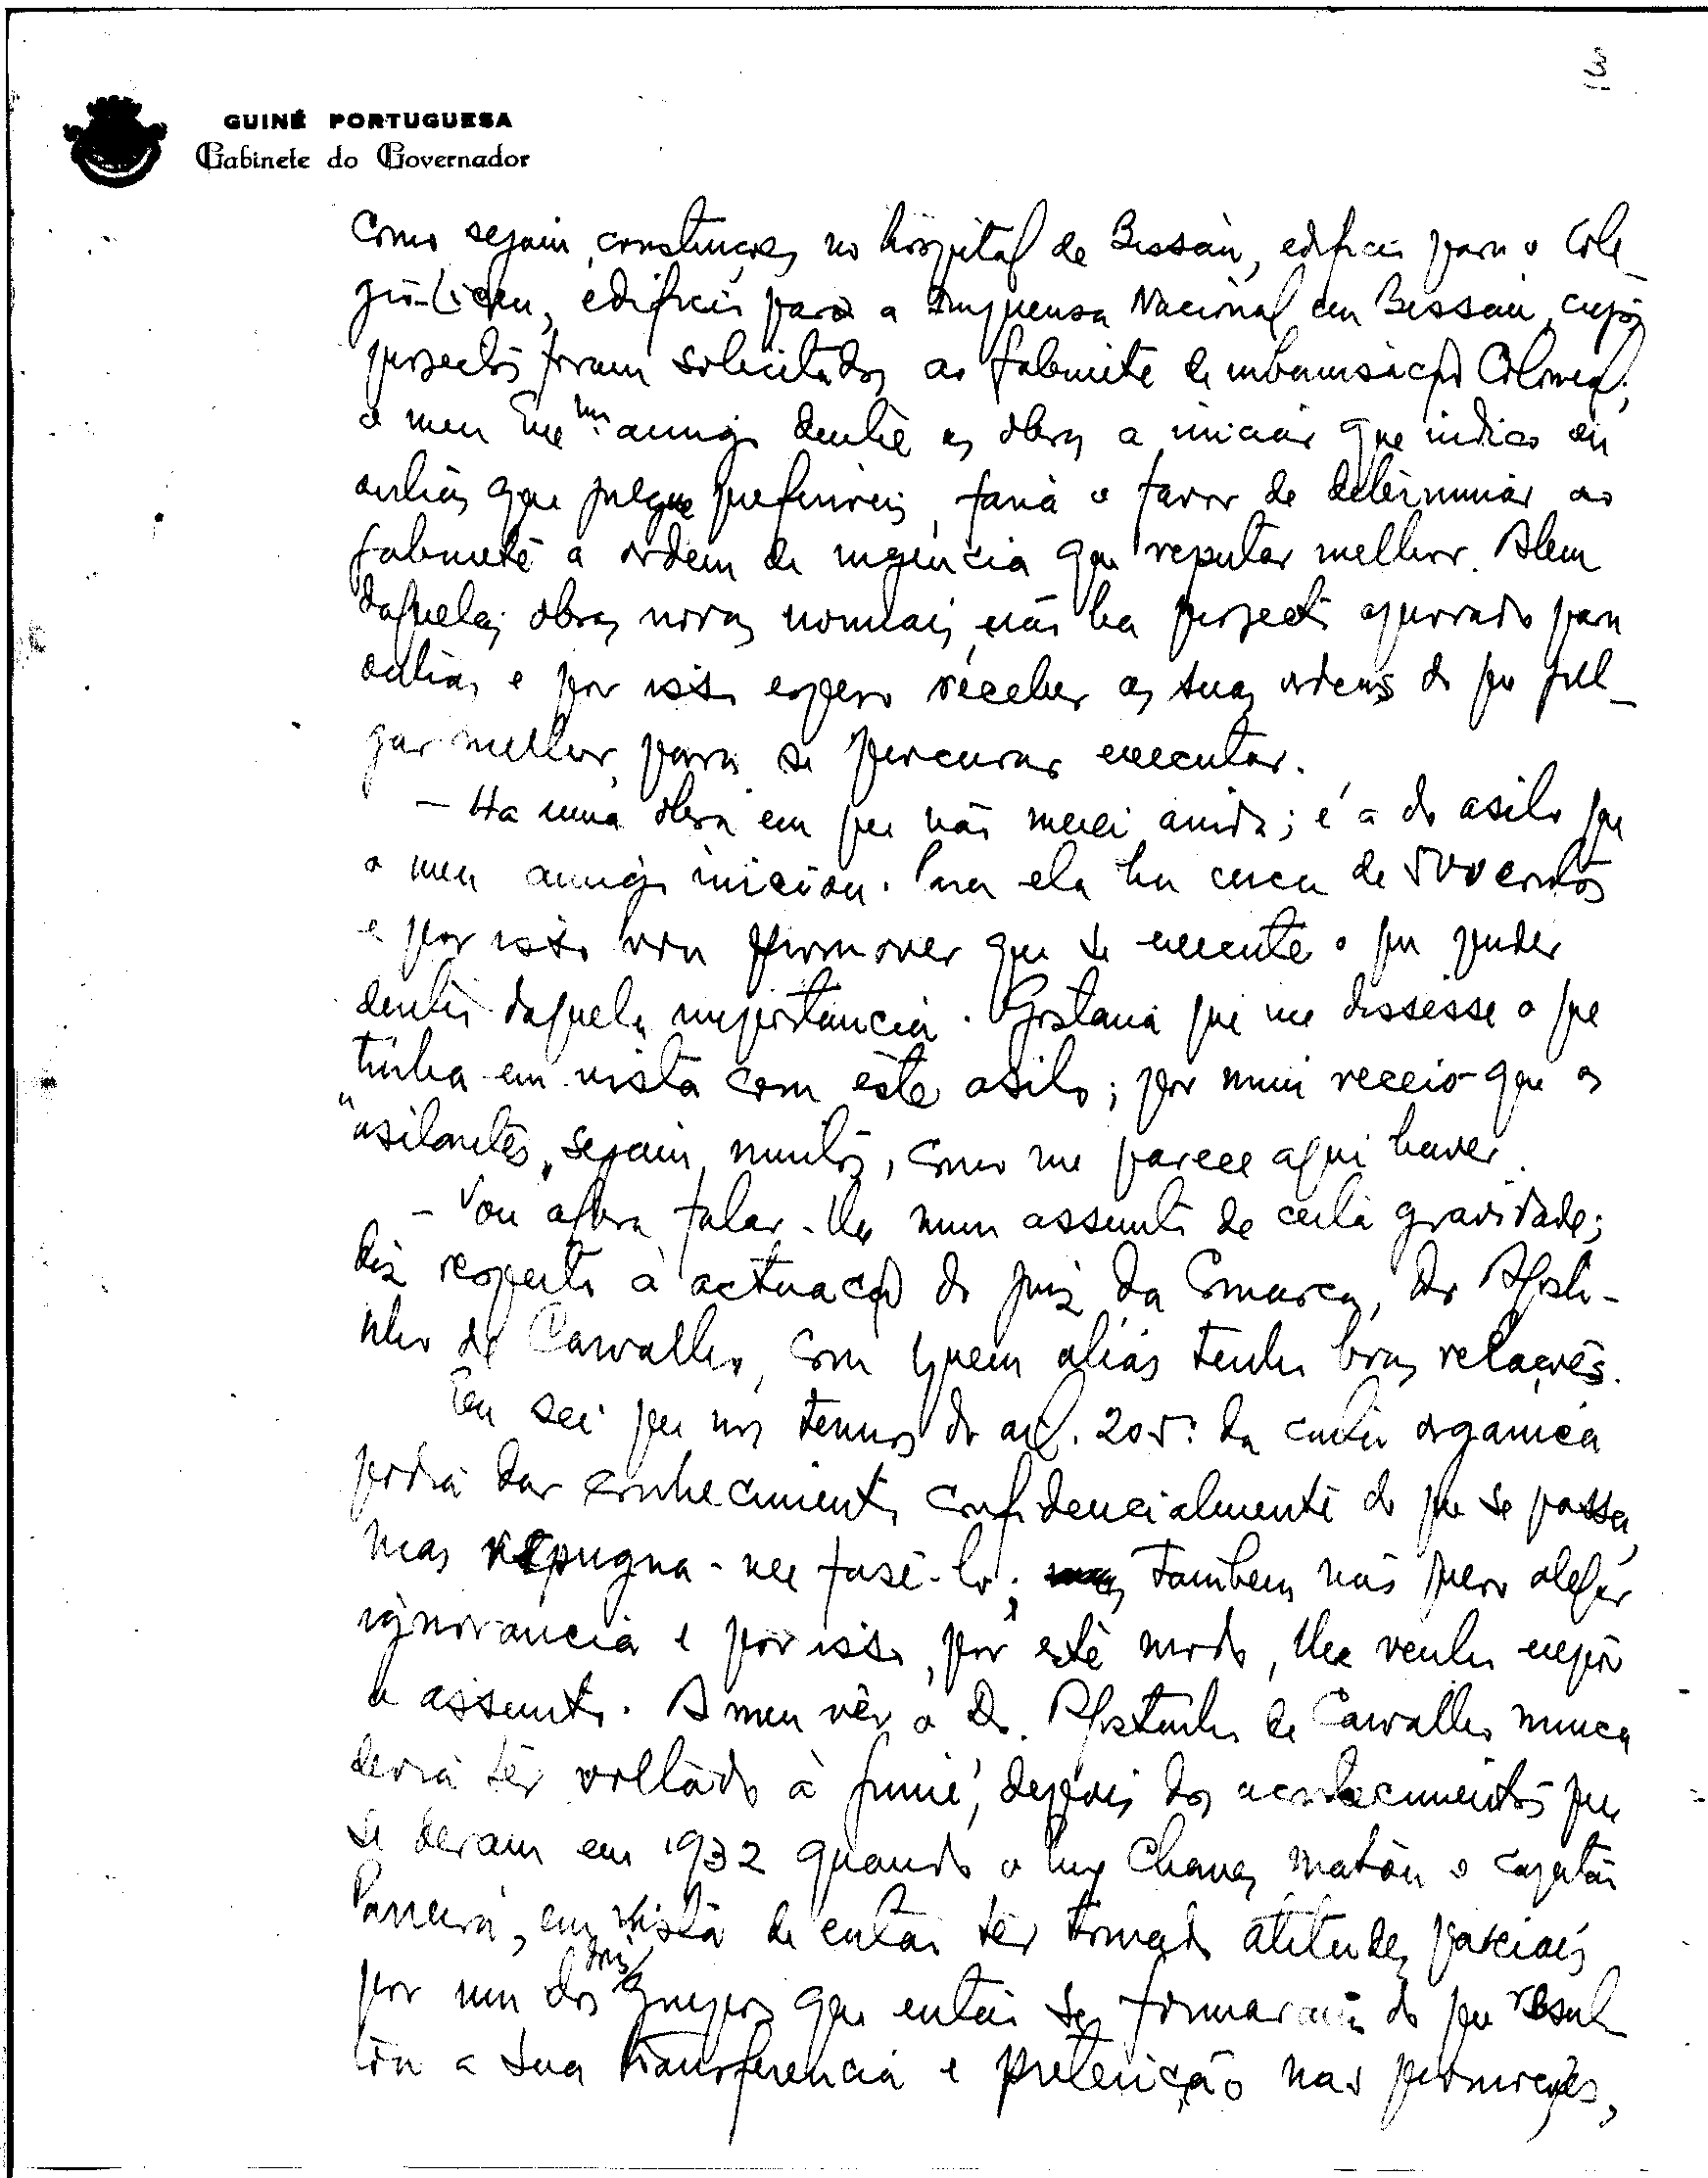 3
GUINÉ PORTUGUESA
Gabinete do Governador
como sejam, construções no hospital de Bissau, edificio para o Cole-
gio-Liceu, edificio para a Imprensa Nacional em Bissau, cujos
projectos foram solicitados ao Gabinete de urbanisação Colonial;
o meu Exe.mo amigo dentre as obras a iniciar que indico ou
outras que julgue preferiveis, fará o favor de determinar ao
Gabinete a ordem de urgencia que reputar melhor. Alem
daquelas obras novas normais, não ha projecto aprovado para
outras e por isso espero receber as suas ordens do que jul-
gar melhor, para se procurar executar.
- Ha uma obra em que não mexi ainda; é a do asilo que
o meu amigo iniciou. Para ela ha cerca de 500 contos
e por isso vou promover que se execute o que puder
dentro daquela importancia. Gostaria que me dissesse o que
tinha em vista com este asilo; por mim receio que os
"asilantes" sejam muitos, como me parece aqui haver.
- Vou agora falar-lhe num assunto de certa gravidade;
diz respeito à actuação do juiz da Comarca, Dr Agosti-
nho de Carvalho, com quem aliás tenho boas relações.
Eu sei que nos termos do art. 205º da carta organica
podia dar conhecimento confidencialmente do que se passa,
mas repugna-me fasê-lo; tambem não quero alegar
ignorancia e por isso, por este modo, lhe venho expôr
o assunto. A meu vêr o Dr. Agostinho de Carvalho nunca
devia têr voltado à Guiné, depois dos acontecimentos que
se deram em 1932 quando o Luz Chaves matou o capitão
em vista de então têr tomado atitudes parciais
por um dos dois grupos que então se formaram do que resul-
tou a sua transferencia e preterição nas promoções,